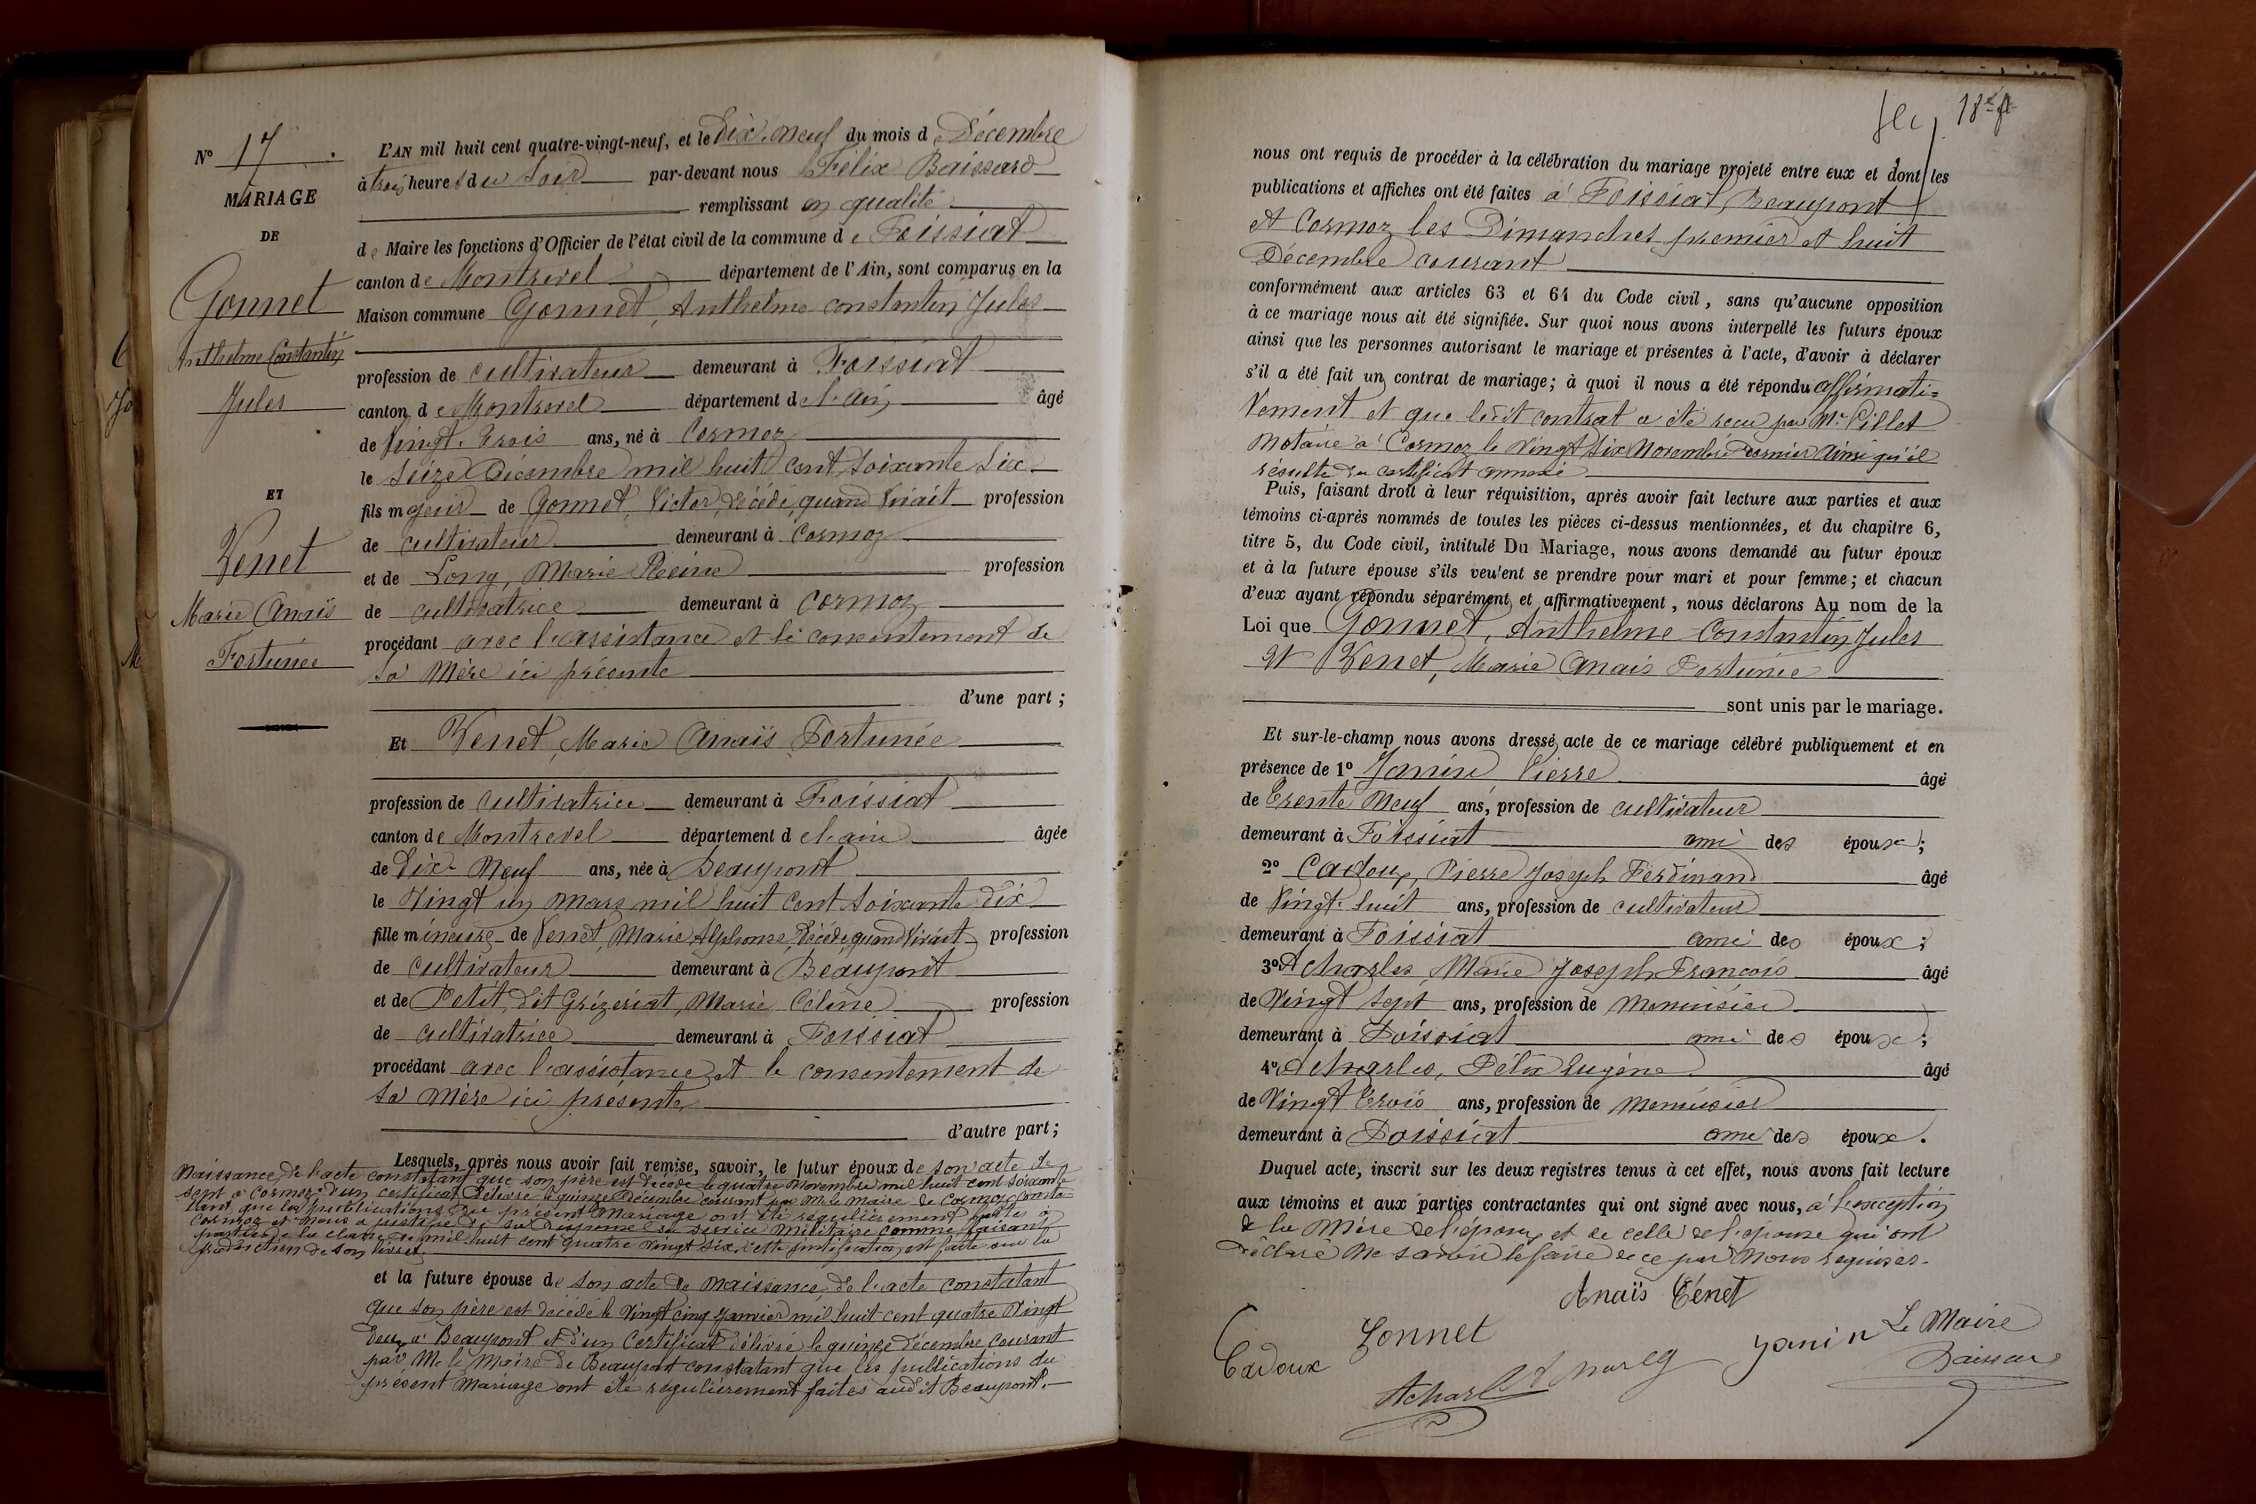 N° 17
MARIAGE
DE
Gonnet
Anthelme Constantin
Jules
ET
Venet
Marie Anaïs
Fortunée
L'AN mil huit cent quatre-vingt-neuf, et le Dix-Neuf du mois de Décembre
à trois heures du soir par-devant nous Félix Baissard
remplissant en qualité
de Maire les fonctions d'Officier de l'état civil de la commune de Foissiat
canton de Montrevel département de l'Ain, sont comparus en la
Maison commune Gonnet, Anthelme constantin Jules
profession de cultivateur demeurant à Foissiat
canton de Montrevel département de l'Ain, âgé
de Vingt-Trois ans, né à Cormoz
le seize Décembre mil huit cent soixante six
fils majeur de Gonnet, Victor, décédé, quand vivait profession
de cultivateur demeurant à Cormoz
et de Long, Marie Reine profession
de cultivatrice demeurant à Cormoz
procédant avec l'assistance et le consentement de
sa mère ici présente
d'une part ;
Et Venet, Marie Anaïs Fortunée
profession de cultivatrice demeurant à Foissiat
canton de Montrevel département de l'ain âgée
de Dix-Neuf ans, née à Beaupont
le Vingt un Mars mil huit cent soixante Dix
fille mineure de Venet, Marie Alphonse, Décédé, quand vivait profession
de cultivateur demeurant à Beaupont
et de Petit dit Grizeriat, Marie Céline profession
de cultivatrice demeurant à Foissiat
procédant avec l'assistance et le consentement de
sa mère ici présente
d'autre part ;
Lesquels, après nous avoir fait remise, savoir, le futur époux de son acte de
Naissance, de l'acte constatant que son père est décédé le quatre Novembre mil huit cent soixante
sept à Cormoz, d'un certificat délivré le quinze Décembre courant par Mr le Maire de Cormoz, consta-
tant que les publications du présent Mariage ont été régulièrement faites à
Cormoz et nous a justifié de sa du service Militaire comme faisant
partie de la classe de mil huit cent quatre vingt six, cette justification est faite sur la
production de son livret.
et la future épouse de son acte de Naissance, de l'acte constatant
que son père est décédé le Vingt cinq Janvier mil huit cent quatre Vingt
Deux à Beaupont et d'un Certificat délivré le quinze décembre courant
par Mr le Maire de Beaupont constatant que les publications du
présent Mariage ont été régulièrement faites audit Beaupont.
18
nous ont requis de procéder à la célébration du mariage projeté entre eux et dont les
publications et affiches ont été faites à Foissiat, Beaupont
et Cormoz les Dimanches premier et huit
Décembre courant
conformément aux articles 63 et 64 du Code civil, sans qu'aucune opposition
à ce mariage nous ait été signifiée. Sur quoi nous avons interpellé les futurs époux
ainsi que les personnes autorisant le mariage et présentes à l'acte, d'avoir à déclarer
s'il a été fait un contrat de mariage ; à quoi il nous a été répondu affirmati-
vement et que ledit contrat a été reçu par Mr Pillet
Notaire à Cormoz le Vingt Six Novembre dernier ainsi qu'il
résulte du certificat annexé
Puis, faisant droit à leur réquisition, après avoir fait lecture aux parties et aux
témoins ci-après nommés de toutes les pièces ci-dessus mentionnées, et du chapitre 6,
titre 5, du Code civil, intitulé Du Mariage, nous avons demandé au futur époux
et à la future épouse s'ils veulent se prendre pour mari et pour femme ; et chacun
d'eux ayant répondu séparément et affirmativement, nous déclarons Au nom de la
Loi que Gonnet, Anthelme Constantin Jules
et Venet, Marie Anaïs Fortunée
sont unis par le mariage.
Et sur-le-champ nous avons dressé acte de ce mariage célébré publiquement et en
présence de 1° Janin Pierre âgé
de Trente Neuf ans, profession de cultivateur
demeurant à Foissiat ami des époux ;
2° Cadoux, Pierre Joseph Ferdinand âgé
de Vingt-huit ans, profession de cultivateur
demeurant à Foissiat ami des époux ;
3° Acharles, Marie Joseph François âgé
de Vingt sept ans, profession de Menuisier
demeurant à Foissiat ami des époux ;
4° Acharles, Félix Eugène âgé
de Vingt Trois ans, profession de Menuisier
demeurant à Foissiat ami des époux.
Duquel acte, inscrit sur les deux registres tenus à cet effet, nous avons fait lecture
aux témoins et aux parties contractantes qui ont signé avec nous, à l'exception
de la Mère de l'époux et de celle de l'épouse qui ont
déclaré ne savoir le faire de ce par Nous requises.
Anaïs Vénet
Cadoux Gonnet Janin Le Maire
Acharles Baissard